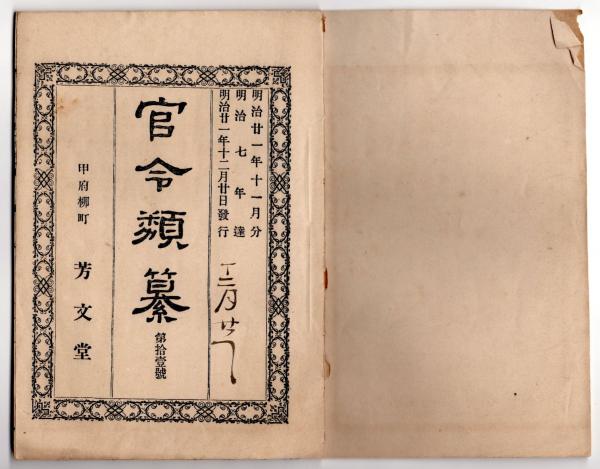 明治廿一年十一月分
明治七年達
明治廿一年十二月廿日發行
十二月廿
官令類纂
第拾壹號
甲府柳町
芳文堂